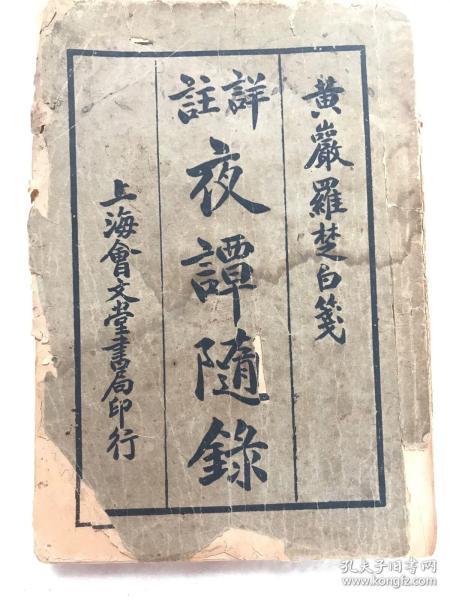 黃巖羅楚白箋
詳註
夜譚隨錄
上海會文堂書局印行
孔夫子旧书网
www.kongfz.com